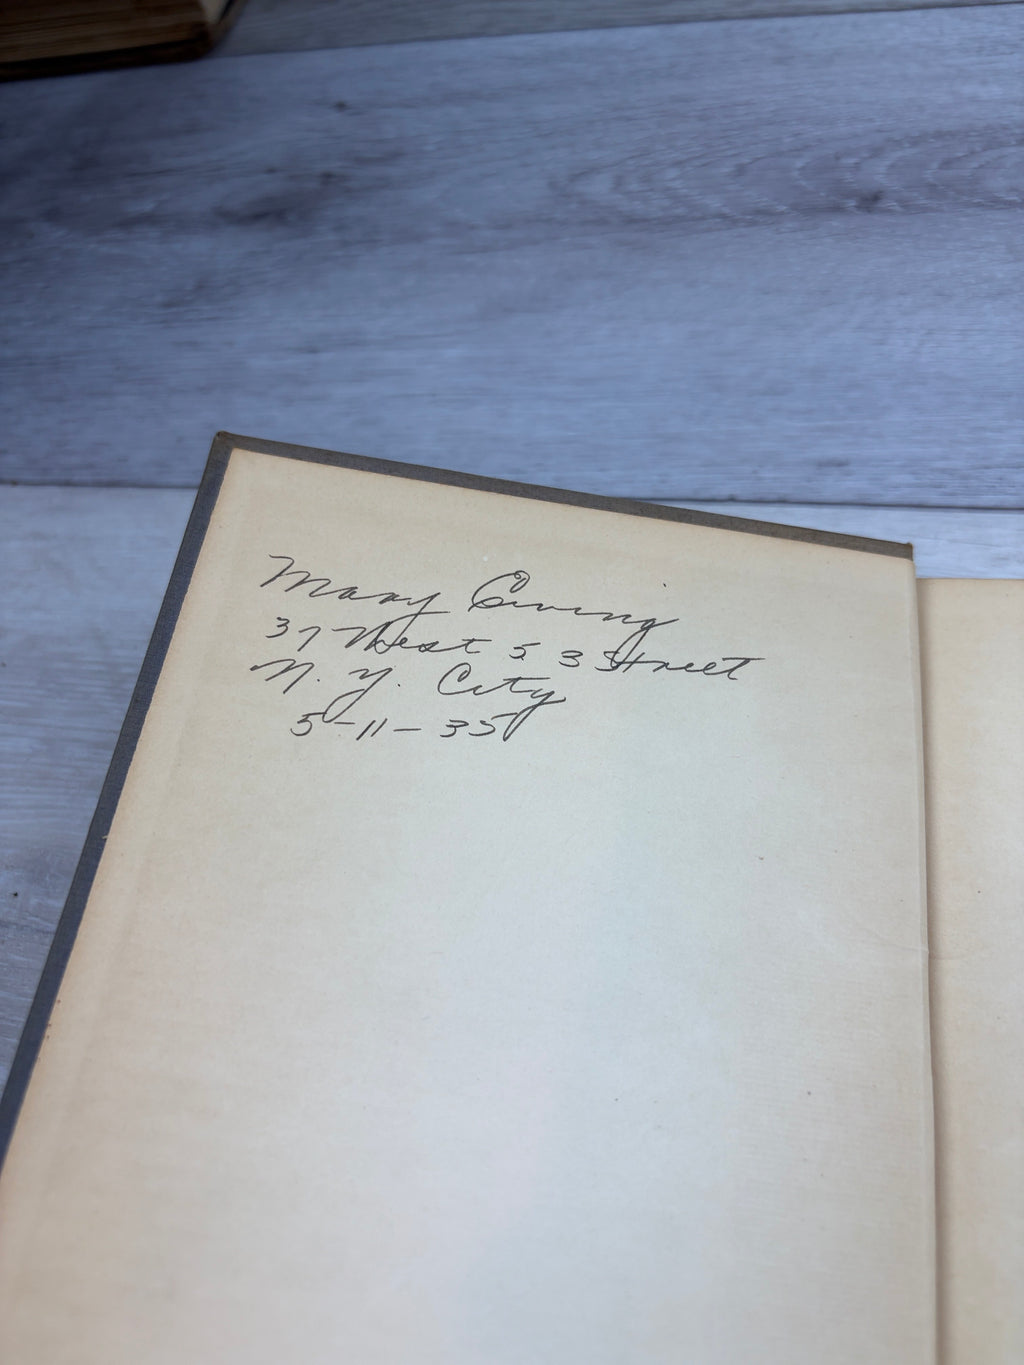 Mary Ewing
37 West 53 Street
N. Y. City
5-11-35